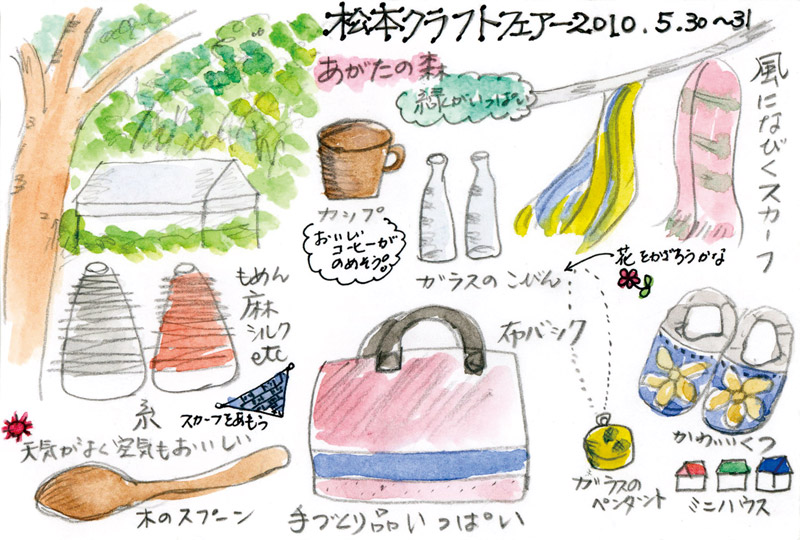 松本クラフトフェアー2010.5.30〜31
あがたの森
緑がいっぱい
風になびくスカーフ
カップ
おいしい
コーヒーが
のめそう。
ガラスのこびん
花をかざろうかな
もめん
麻
シルク
etc
糸
スカーフをあもう
布バック
天気がよく空気もおいしい
木のスプーン
手づくり品いっぱい
ガラスの
ペンダント
かわいいくつ
ミニハウス